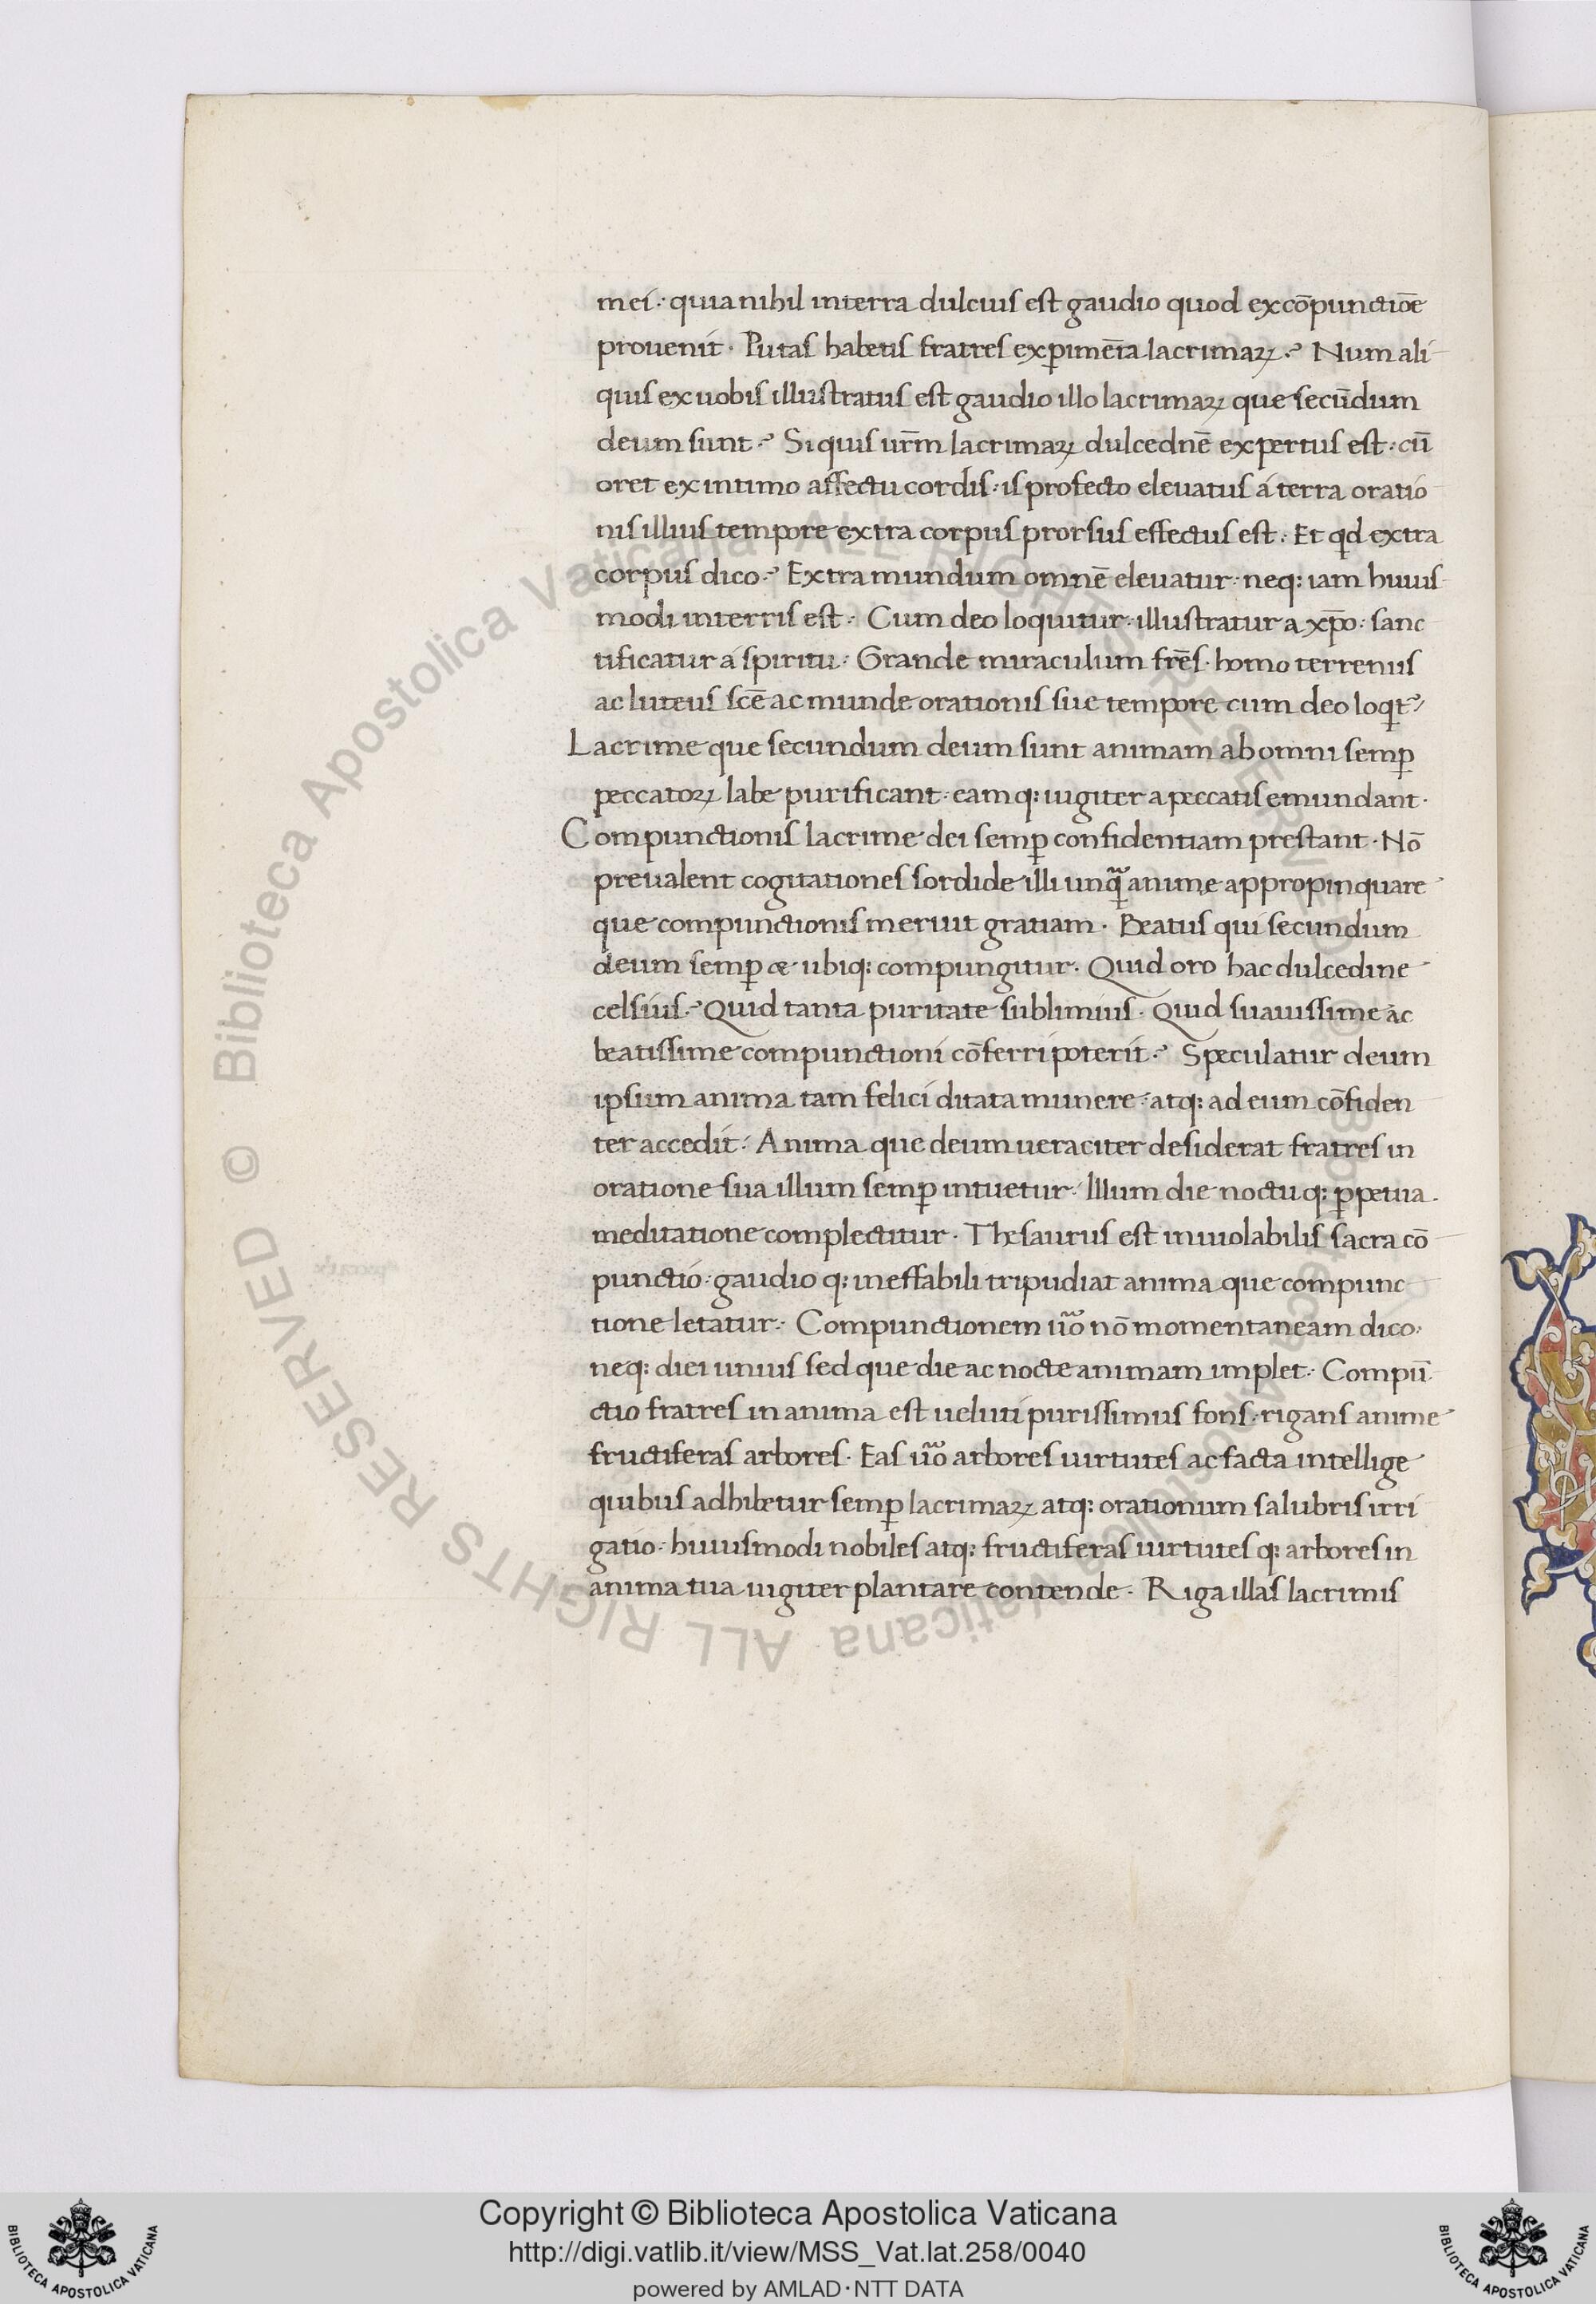 mei: quia nihil in terra dulcius est gaudio quod ex cōpunctiōe
prouenit. Putas habetis fratres exp̱imēta lacrimaꝝ? Num ali
quis ex uobis illustratus est gaudio illo lacrimaꝝ que secūdum
deum sunt? Si quis ur̄m lacrimaꝝ dulcednē expertus est: cū
oret ex intimo affectu cordis: is profecto eleuatus á terra oratio
nis illius tempore extra corpus prorsus effectus est. Et qd extra
corpus dico? Extra mundum omnē eleuatur: neq: iam huius
modi in terris est: Cum deo loquitur: illustratur a xp̄o: sanc
tificatur á spiritu: Grande miraculum frēs. homo terrenus
ac luteus scē ac munde orationis sue tempore cum deo loqt̃?
Lacrime que secundum deum sunt animam ab omni semꝑ
peccatoꝝ labe purificant: eamq: iugiter a peccatis emundant.
Compunctionis lacrime dei semꝑ confidentiam prestant. Nō
preualent cogitationes sordide illi unq̃ anime appropinquare
que compunctionis meruit gratiam. Beatus qui secundum
deum semꝑ & ubiq: compungitur. Quid oro hac dulcedine
celsius? Quid tanta puritate sublimius. Quid suauissime ac
beatissime compunctioni cōferri poterit? Speculatur deum
ipsum anima tam felici ditata munere: atq: ad eum cōfiden
ter accedit: Anima que deum ueraciter desiderat fratres in
oratione sua illum semꝑ intuetur: Illum die noctu q: ꝑpetua
meditatione complectitur. Thesaurus est inuiolabilis sacra cō
punctio: gaudio q: ineffabili tripudiat anima que compunc
tione letatur: Compunctionem ũo nō momentaneam dico:
neq: diei unius sed que die ac nocte animam implet: Compū
ctio fratres in anima est ueluti purissimus fons: rigans anime
fructiferas arbores. Eas ũo arbores uirtutes ac facta intellige
quibus adhibetur semꝑ lacrimaꝝ atq: orationum salubris irri
gatio: huiusmodi nobiles atq: fructiferas uirtutes q: arbores in
anima tua iugiter plantare contende. Riga illas lacrimis
© Biblioteca Apostolica Vaticana ALL RIGHTS RESERVED © Biblioteca Apostolica Vaticana ALL RIGHTS RESERVED
Copyright © Biblioteca Apostolica Vaticana
http://digi.vatlib.it/view/MSS_Vat.lat.258/0040
powered by AMLAD·NTT DATA
BIBLIOTECA APOSTOLICA VATICANA
BIBLIOTECA APOSTOLICA VATICANA